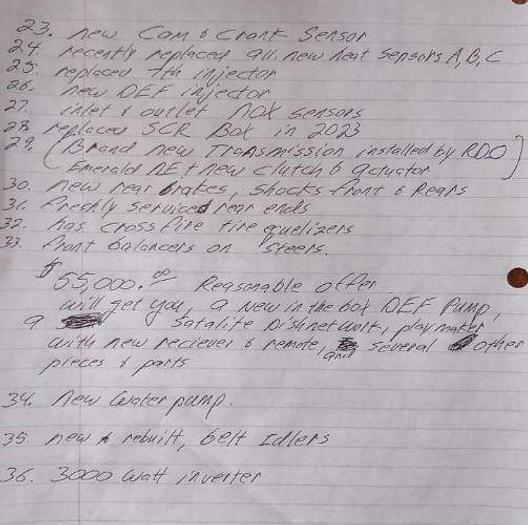 23. new Cam & Crank Sensor
24. recently replaced all new heat sensors A, B, C
25. replaced 7th injector
26. new DEF injector
27. inlet & outlet NOX sensors
28. replaced SCR Box in 2023
29. (Brand new Transmission installed by RDO)
Emerald NE + new clutch & actuator
30. new rear brakes, shocks front & Rears
31. freshly serviced rear ends
32. has crossfire tire equelizers
33. front balancers on steers.
$55,000.00 Reasonable offer
will get you, a new in the box DEF Pump,
a Satalite Dishnetwork, playmaker
with new reciever & remote, and several other
pieces & parts
34. New Water pump.
35. new & rebuilt, belt Idlers
36. 3000 Watt inverter